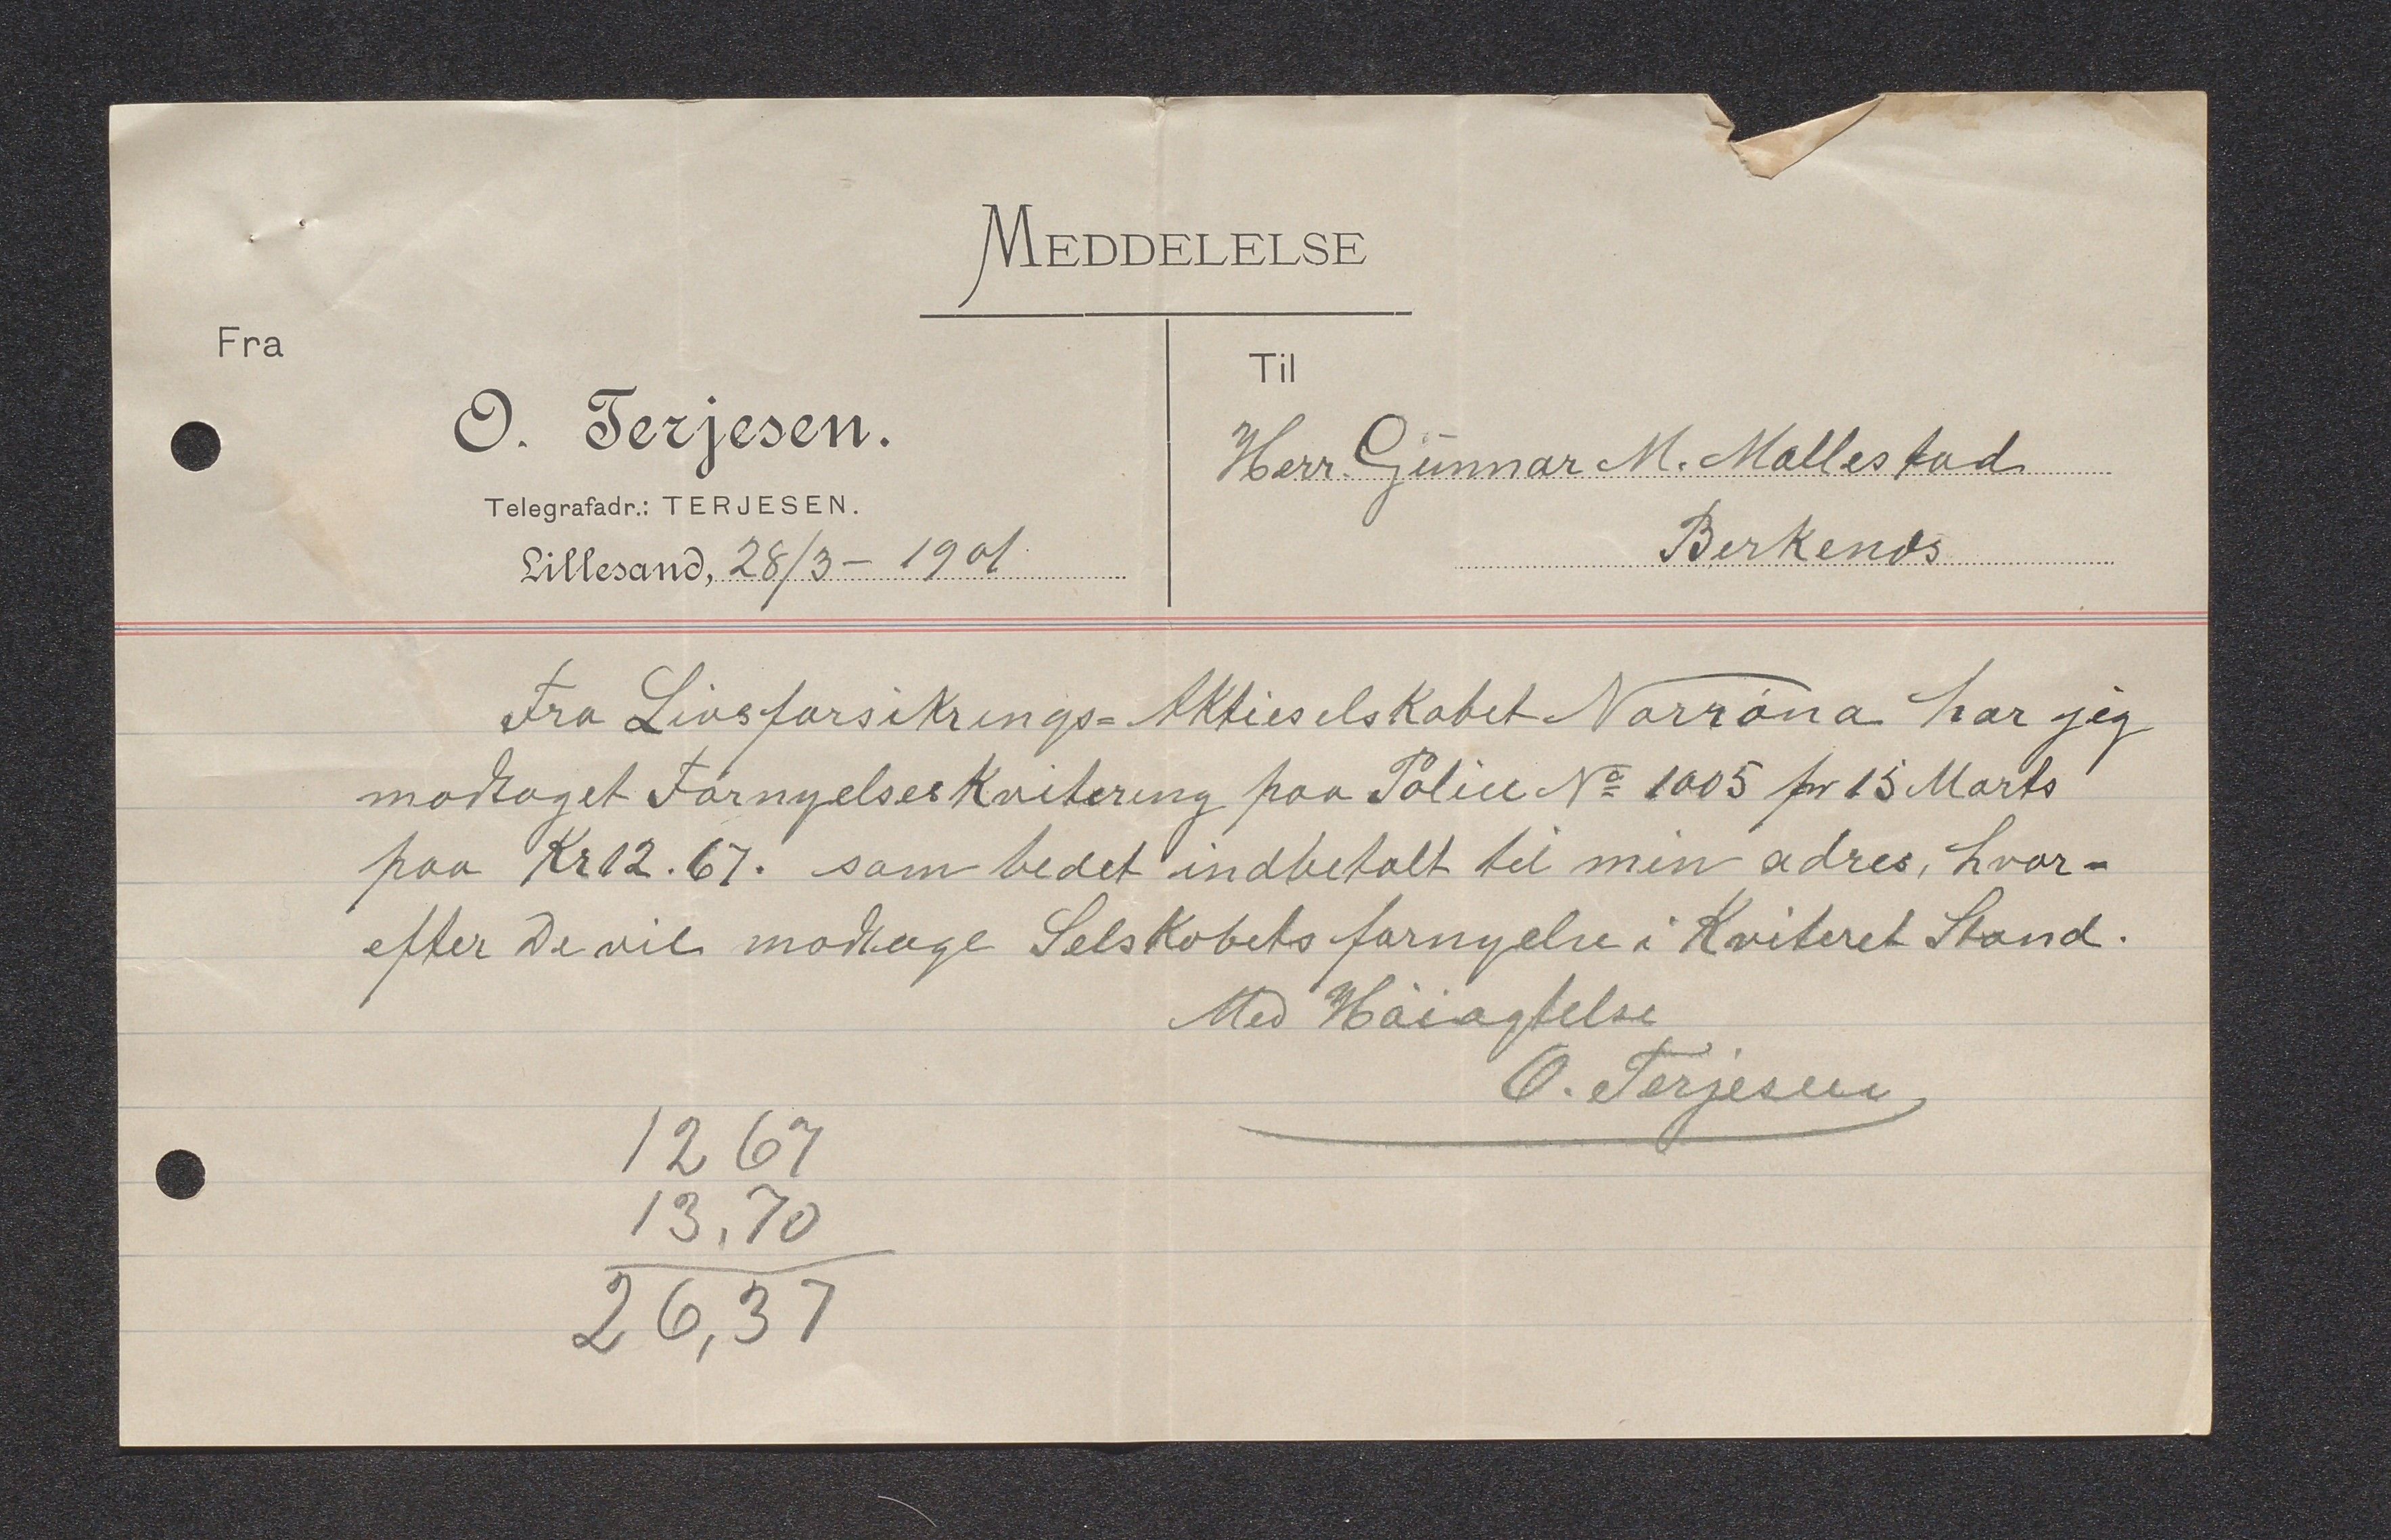 MEDDELELSE
Fra
O. Terjesen.
Telegrafadr.: TERJESEN.
Lillesand, 28/3 – 1901
Til
Herr Gunnar M. Mollestad
Berkenes
Fra Livsforsikrings=Aktieselskabet Norrøna har jeg
modtaget Fornyelseskvitering paa Police Nº 1005 pr 15 Marts
paa Kr 12.67. som bedet indbetalt til min adres, hvor=
efter De vil modtage Selskabets fornyelse i Kviteret Stand.
Med Høiagtelse
O. Terjesen
12 67
13,70
26,37